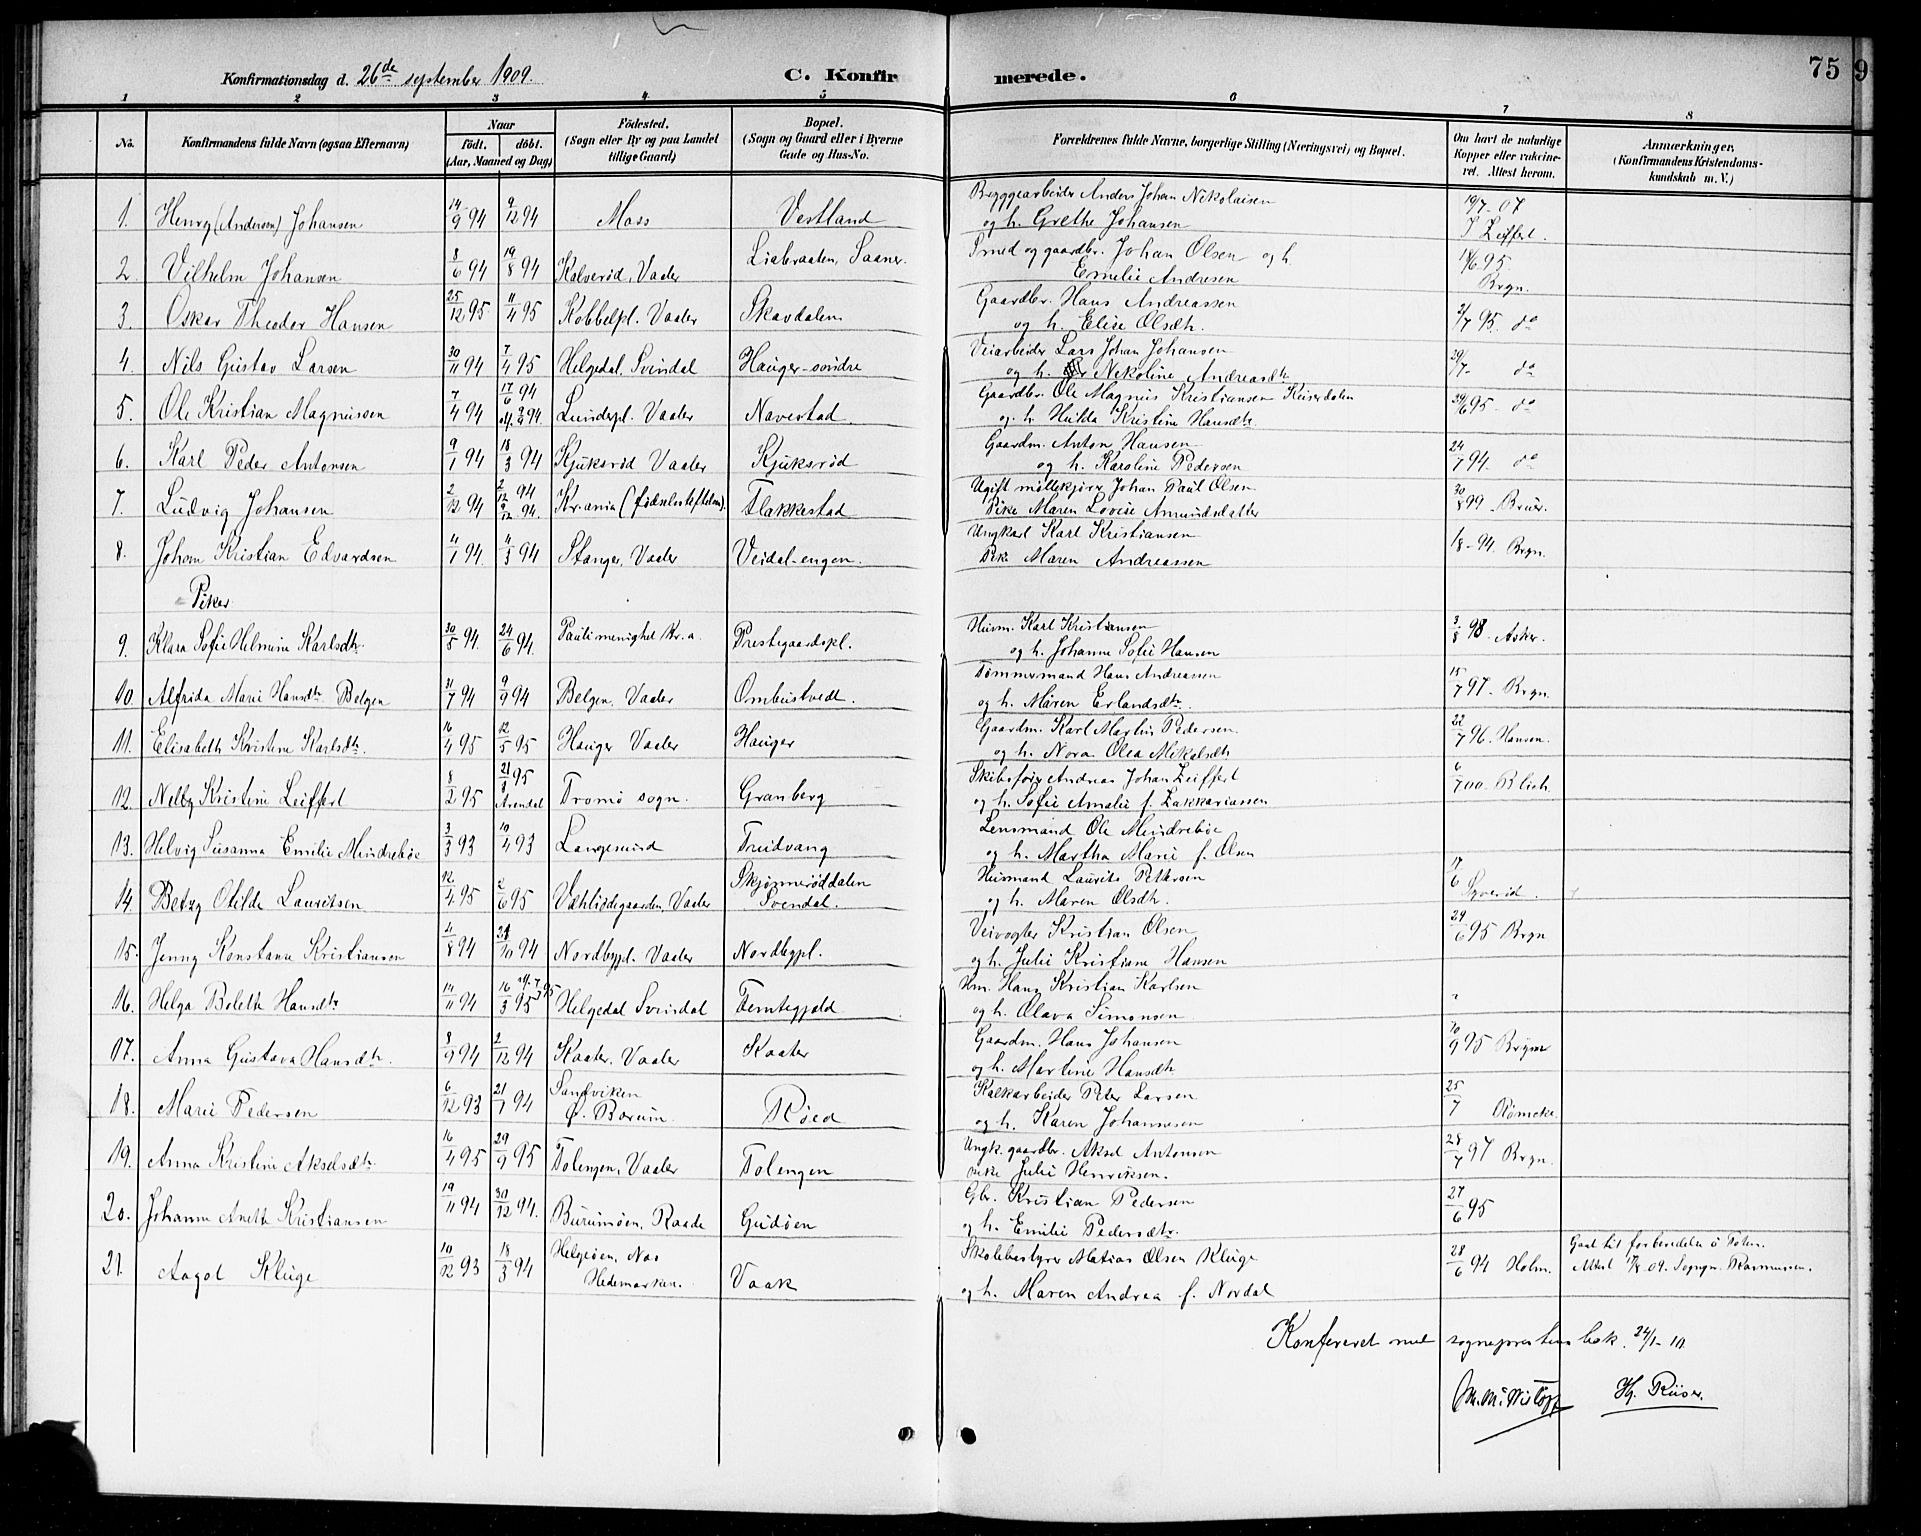 Konfirmationsdag d. 26de september 1909.
C. Konfirmerede.
75
9
1 2 3 4 5 6 7 8
No. Konfirmandens fulde Navn (ogsaa Efternavn) Naar födt. döbt. (Aar, Maaned og Dag) Födested. (Sogn eller By og paa Landet tillige Gaard) Bopæl. (Sogn og Gaard eller i Byerne Gade og Hus-No. Forældrenes fulde Navne, borgerlige Stilling (Næringsvei) og Bopæl. Om havt de naturlige Kopper eller vakcineret. Attest herom. Anmærkninger. (Konfirmandens Kristendomskundskab m. V.)
1. Henry (Andersen) Johansen 14/9 94 9/12 94 Moss Vestland Byggearbeider Anders Johan Nikolaisen
og h. Grethe Johansen 19/7-07
2. Vilhelm Johansen 8/6 94 19/8 94 Kalverød, Vaaler Liabraaten, Saaner. Smed og gaardbr. Johan Olsen og h.
Emelie Andresen 14/6 95 Brgn.
3. Oskar Theodor Hansen 25/12 95 11/4 95 Kobbelpl. Vaaler Skavdalen Gaardbr. Hans Andreassen
og h. Elise Olsdh. 2/7 95. do
4. Nils Gustav Larsen 30/11 94 7/4 95 Helgedal, Svindal Hauger-søndre Veiarbeider Lars Johan Johansen
og h. Nekoline Andreasdtr 29/7- do
5. Ole Kristian Magnussen 7/4 94 17/6 94 Lunderpl. Vaaler Navestad. Gaardbr. Ole Magnus Kristiansen Keiserdalen
og h. Hulda Kristine Hansdtr. 29/6 95- do
6. Karl Peder Antonsen 9/1 94 18/3 94 Kjuksrød Vaaler Kjuksrød Gaardm. Anton Hansen
og h. Karoline Pedersen 24/7 94- do
7. Ludvig Johansen 2/12 94 Kr.ania (fødselsstiftelsen). Flakkestad Ugift møllekjører Johan Paul Olsen
Pike Maren Lovise Amundsdatter 30/8 99 Bruer.
8. Johan Kristian Edvardsen 4/1 94. 4/3 94 Stanger, Vaaler Veidal-engen. Ungkarl Karl Kristiansen
Pike Maren Andreassen 1/8-94. Brgn.
Piker
9. Klara Sofie Helmine Karlsdtr. 30/5 94. 24/6 94. Paulimenighet Kr.a. Prestegaardspl. Husm. Karl Kristiansen
og h. Johanne Sofie Hansen 3/8 98. Asker.
10. Alfrida Marie Hansdtr. Belgen 31/7 94 9/9 94 Belgen, Vaaler Ombustvedt. Tømmermand Hans Andreassen
og h. Maren Erlandsdtr. 15/7 97- Brgn.
11. Elisabeth Kristine Karlsdtr. 16/4 95 12/5 95 Hauger Vaaler Hauger Gaardm. Karl Martin Pedersen
og h. Nora Olea Mikalsdtr 22/7 96. Hansen.
12. Nelly Kristine Leiffert 8/2 95 21/8 95 Arendal Tromø sogn. Granberg Skibsfører Andreas Johan Leiffert
og h. Sofie Amalie f. Zakkariassen 6/7 00- Blich.
13. Helvig Susanna Emilie Mindrebøe 3/3 93 19/4 93 Langesund Truidvang Lensmand Ole Mindrebøe
og h. Martha Marie f. Olsen
14. Betzy Otilde Lauritsen 12/4 95 2/6 95 Væhliødegaarden, Vaaler Skjønnerøddalen Svendal. Husmand Laurits Pettersen
og h. Maren Olsdtr. 17/6 Syverid.
15. Jenny Konstanse Kristiansen 4/8 94 28/10 94 Nordbypl. Vaaler Nordbypl. Veivogter Kristian Olsen
og h. Julie Kristiane Hansen 29/6 95 Brgn
16. Helga Bolette Hansdtr 14/11 94 16/3 95 Helgedal Svindal Femtegjeld Hm. Hans Kristian Karlsen
og h. Olava Simonsen "
17. Anna Gustava Hansdtr. 8/9 94 2/12 94 Kaater. Vaaler Kaater Gaardm. Hans Johansen
og h. Martine Hansdtr 10/9 95 Brgn
18. Marie Pedersen 6/12 93 21/1 94 Sandviken Ø. Bærum. Røed Kalkarbeider Peter Larsen
og h. Karen Johannesen 25/7 Rømcke.
19. Anna Kristine Akselsdtr. 16/4 95 29/9 95 Tolengen, Vaaler Tolengen Ungk. gaardbr. Aksel Antonsen
pike Julie Henriksen. 28/7 97 Brgn.
20. Johanne Anette Kristiansen 19/11 94 30/12 94. Burumøen, Raade Gudøen Gbr. Kristian Pedersen
og h. Emilie Pedersdtr. 27/6 95
21. Aagot Kluge 10/12 93 18/3 94 Helgøen, Nes Hedemarken. Vaak Skolebestyrer Matias Olsen Kluge
og h. Maren Andrea f. Nordal 28/6 94 Holm. Gaat til forberedelse i Toten.
Attest 17/8.09. Sogngpr. Rasmussen.
Konfereret med sogneprestens bok. 24/1-10
Hj. Riiser.